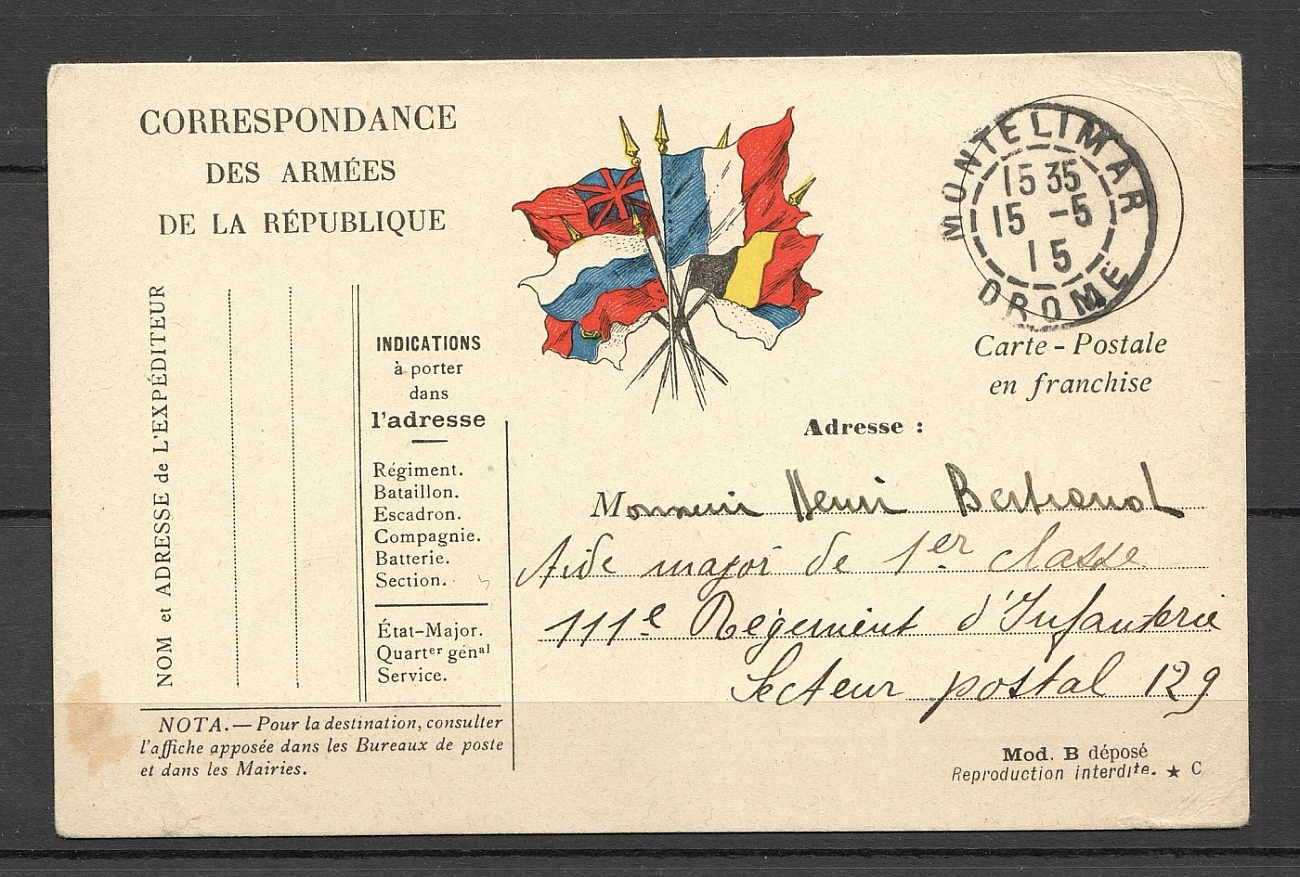 CORRESPONDANCE
DES ARMÉES
DE LA RÉPUBLIQUE
MONTELIMAR
15 35
15 -5
15
DROME
Carte - Postale
en franchise
NOM et ADRESSE de L'EXPÉDITEUR
INDICATIONS
à porter
dans
l'adresse
Régiment.
Bataillon.
Escadron.
Compagnie.
Batterie.
Section.
État-Major.
Quartᵉʳ génᵃˡ
Service.
NOTA. — Pour la destination, consulter
l'affiche apposée dans les Bureaux de poste
et dans les Mairies.
Adresse :
Monsieur Henri Bertrand
Aide major de 1er classe
111e Régiment d'Infanterie
Secteur postal 129
Mod. B déposé
Reproduction interdite. ★ C